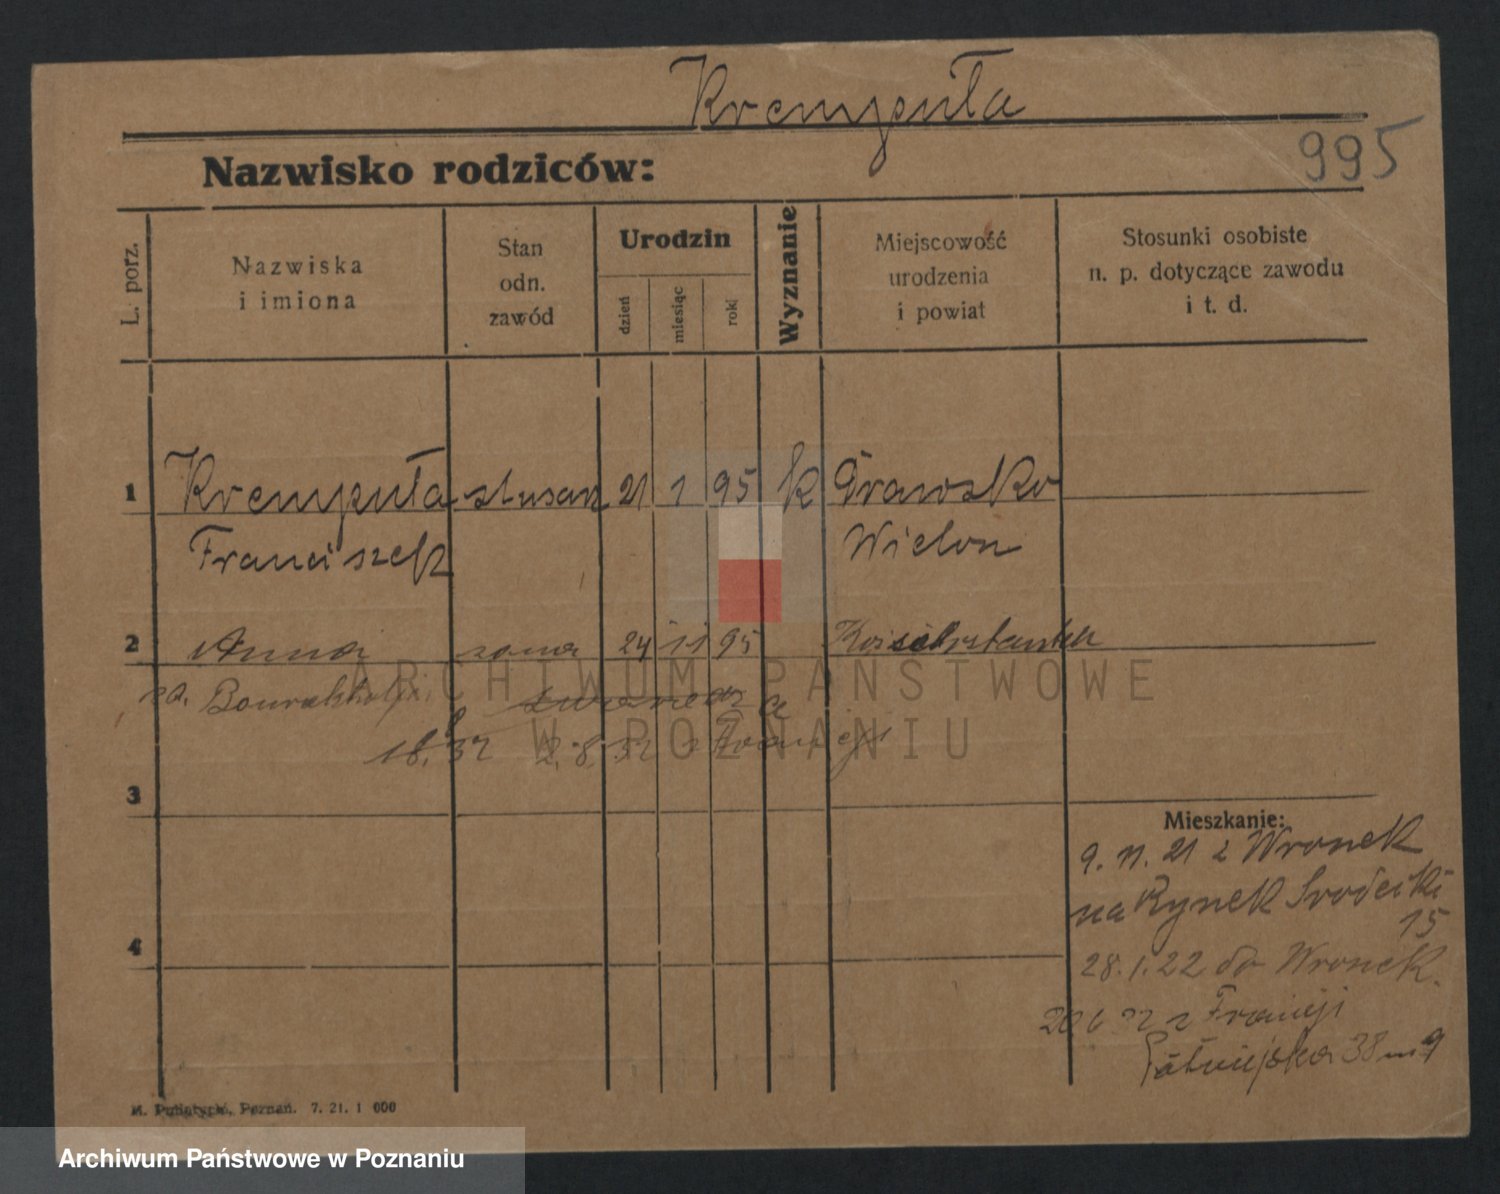 Krempuła
995
Nazwisko rodziców:
L. porz.
Nazwiska
i imiona
Stan
odn.
zawód
Urodzin
dzień
miesiąc
rok
Wyznanie
Miejscowość
urodzenia
i powiat
Stosunki osobiste
n. p. dotyczące zawodu
i t. d.
1 Krempuła ślusarz 21 1 95 k Drawsko
Franciszek Wielon
2 Anna żona 24 11 95
18. 6 32 2. 8. 32 z Francji
3
Mieszkanie:
9. 11. 21 z Wronek
na Rynek Śródecki
15
4
28. 1. 22 do Wronek.
20 6 32 z Francji
38 m 9
7. 21. 1 000
ARCHIWUM PAŃSTWOWE
W POZNANIU
Archiwum Państwowe w Poznaniu